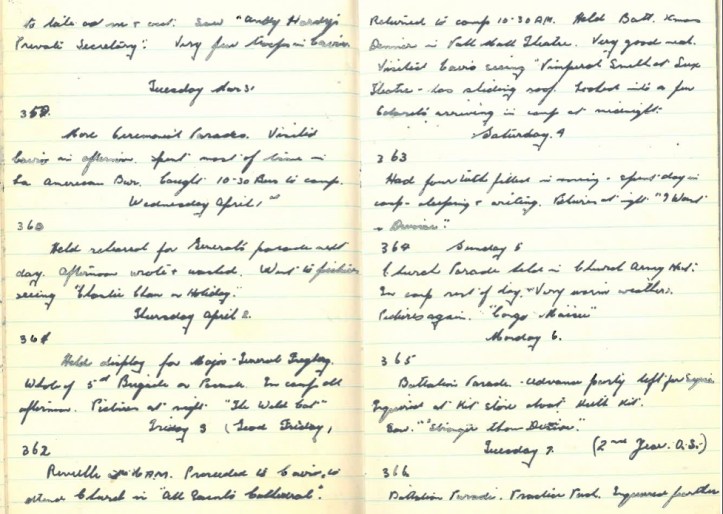 to late at nite + cool. Saw "Andy Hardy's
Private Secretary". Very few troops in Cairo.
Tuesday Mar 31
359.
More Ceremonial Parades. Visited
Cairo in afternoon. Spent most of time in
La American Bar. Caught 10-30 Bus to camp.
Wednesday April 1st
360
Held rehearsal for Generals parade next
day. Afternoon wrote + washed. Went to pictures
seeing "Charlie Chan on Holiday."
Thursday April 2.
361
Held display for Major-General Freyberg.
Whole of 5th Brigade on Parade. In camp all
afternoon. Pictures at night "The Wild Cat"
Friday 3 (Good Friday)
362
Reveille 6 A.M. Proceeded to Cairo, to
attend Church in "All Saints Cathedral".
Returned to camp 10-30 A.M. Held Batt. Xmas
Dinner in Pall Mall Theatre. Very good meal.
Visited Cairo seeing at
Theatre - has sliding roof. Looked into a few
Cabarets arriving in camp at midnight.
Saturday. 4
363
Had four teeth filled in morning - spent day in
camp - sleeping + writing. Pictures at night "I Want
a Divorce"
364 Sunday 5
Church Parade held in Church Army Hut.
In camp rest of day. Very warm weather.
Pictures again. "Congo Maisie"
Monday 6.
365
Battalion Parade - advance party left for
Enquired at Kit store about Kit.
Saw "Stranger than Desire."
Tuesday 7. (2nd Year. O.S.)
366
Battalion Parade. Enquired further